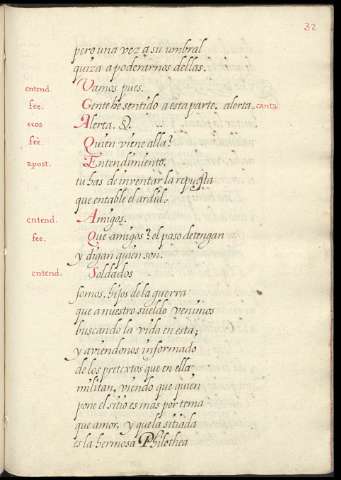 32
pero una vez a su umbral
quiza apoderarnos dellas.
entend. Vamos pues.
fee. Gente he sentido a esta parte, alerta. canta
ecos Alerta.
fee. Quien viene alla?
apost. Entendimiento,
tu has de inventar la repuesta
que entable el ardid.
entend. Amigos.
fee. Que amigos? el paso detengan
y digan quien son.
entend. Soldados
somos, hijos de la guerra
que a nuestro sueldo venimos
buscando la vida en esta;
y aviendonos informado
de los pretextos que en ella
militan, viendo que quien
pone el sitio es mas por tema
que amor, y que la sitiada
es la hermosa Philothea